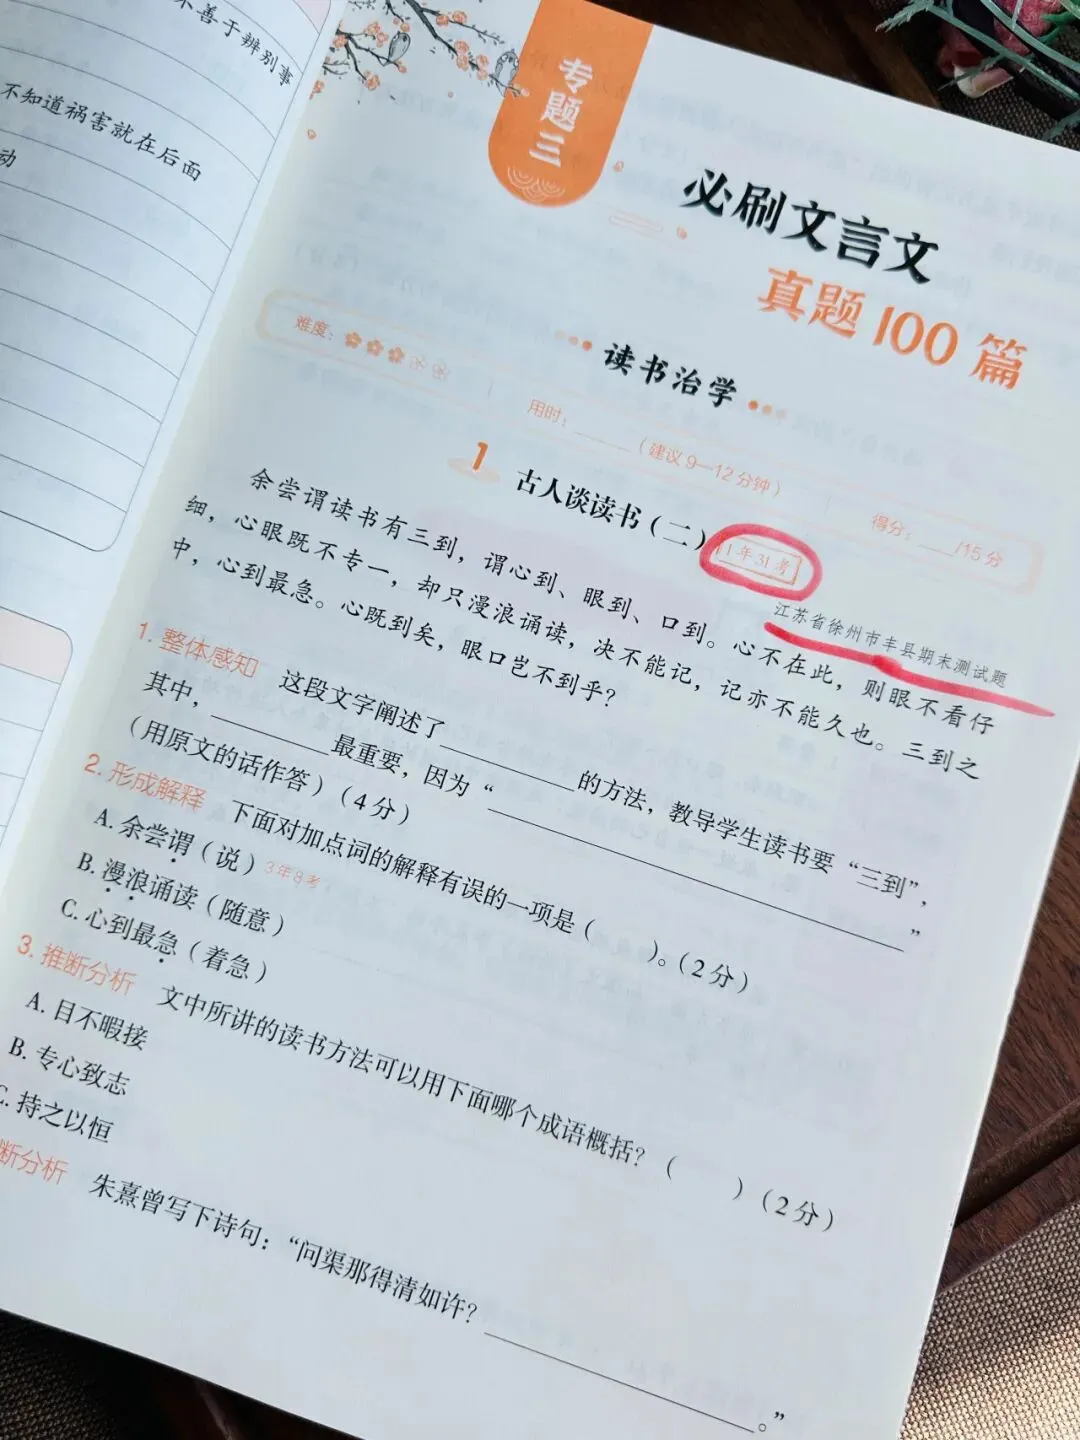 不善于辨别事
不知道祸害就在后面
动
专题三
必刷文言文
真题100篇
读书治学
难度:
用时:______(建议9—12分钟)
得分:___/15分
1 古人谈读书(二) 1年31考
江苏省徐州市丰县期末测试题
余尝谓读书有三到，谓心到、眼到、口到。心不在此，则眼不看仔
细，心眼既不专一，却只漫浪诵读，决不能记，记亦不能久也。三到之
中，心到最急。心既到矣，眼口岂不到乎?
1. 整体感知 这段文字阐述了__________的方法，教导学生读书要“三到”，
其中，__________最重要，因为“______________________________”
(用原文的话作答)(4分)
2. 形成解释 下面对加点词的解释有误的一项是( )。(2分)
A. 余尝谓(说) 3年8考
B. 漫浪诵读(随意)
C. 心到最急(着急)
3. 推断分析 文中所讲的读书方法可以用下面哪个成语概括?( )(2分)
A. 目不暇接
B. 专心致志
C. 持之以恒
断分析 朱熹曾写下诗句:“问渠那得清如许?____________________。”